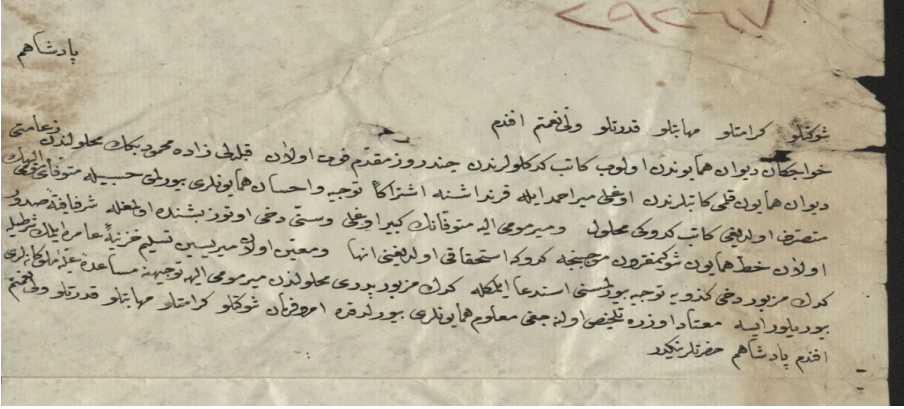 ٢٩٢٦٧
پادشاهم
شوكتلو كرامتلو مهابتلو قدرتلو ولی نعمتم افندم
خواجكان ديوان همايوندن اولوب كاتب كدكلولرندن چند روز مقدم فوت اولان قبلی زاده محمود بكك محلولندن زعامتی
ديوان همايون قلمی كاتبلرندن اوغلی مير احمد ايله قرنداشنه اشتراكا توجيه واحسان همايونلری بورلمق حسبيله متوفای مومی اليهك
متصرف اولديغی كاتب كدوكی محلول ومير مومی اليه متوفانك كبير اوغلی وسنی دخی اوتوز بشنده اولمغله شرفيافتهٔ صدور
اولان خط همايون شوكتمقرون موجبنجه كدوكه استحقاقی اولديغنی انها ومعين اولان ميريسين تسليم خزينهٔ عامره ايلمك شرطيله
كدك مزبور دخی كندويه توجيه بورلمسنی استدعا ايلمكله كدك مزبور پدری محلولندن مير مومی اليه توجيهنه مساعدهٔ عليهٔ ملوكانه لری
بوريلور ايسه معتاد اوزره تلخيصی اولنه جغی معلوم همايونلری بورلدقده امر وفرمان شوكتلو كرامتلو مهابتلو قدرتلو ولی نعمتم
افندم پادشاهم حضرتلرينكدر